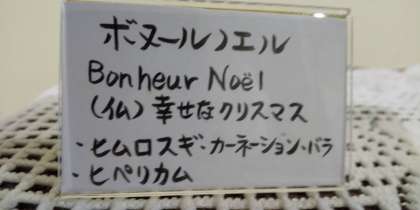 ボヌールノエル
Bonheur Noël
(仏) 幸せなクリスマス
・ヒムロスギ・カーネーション・バラ
・ヒペリカム